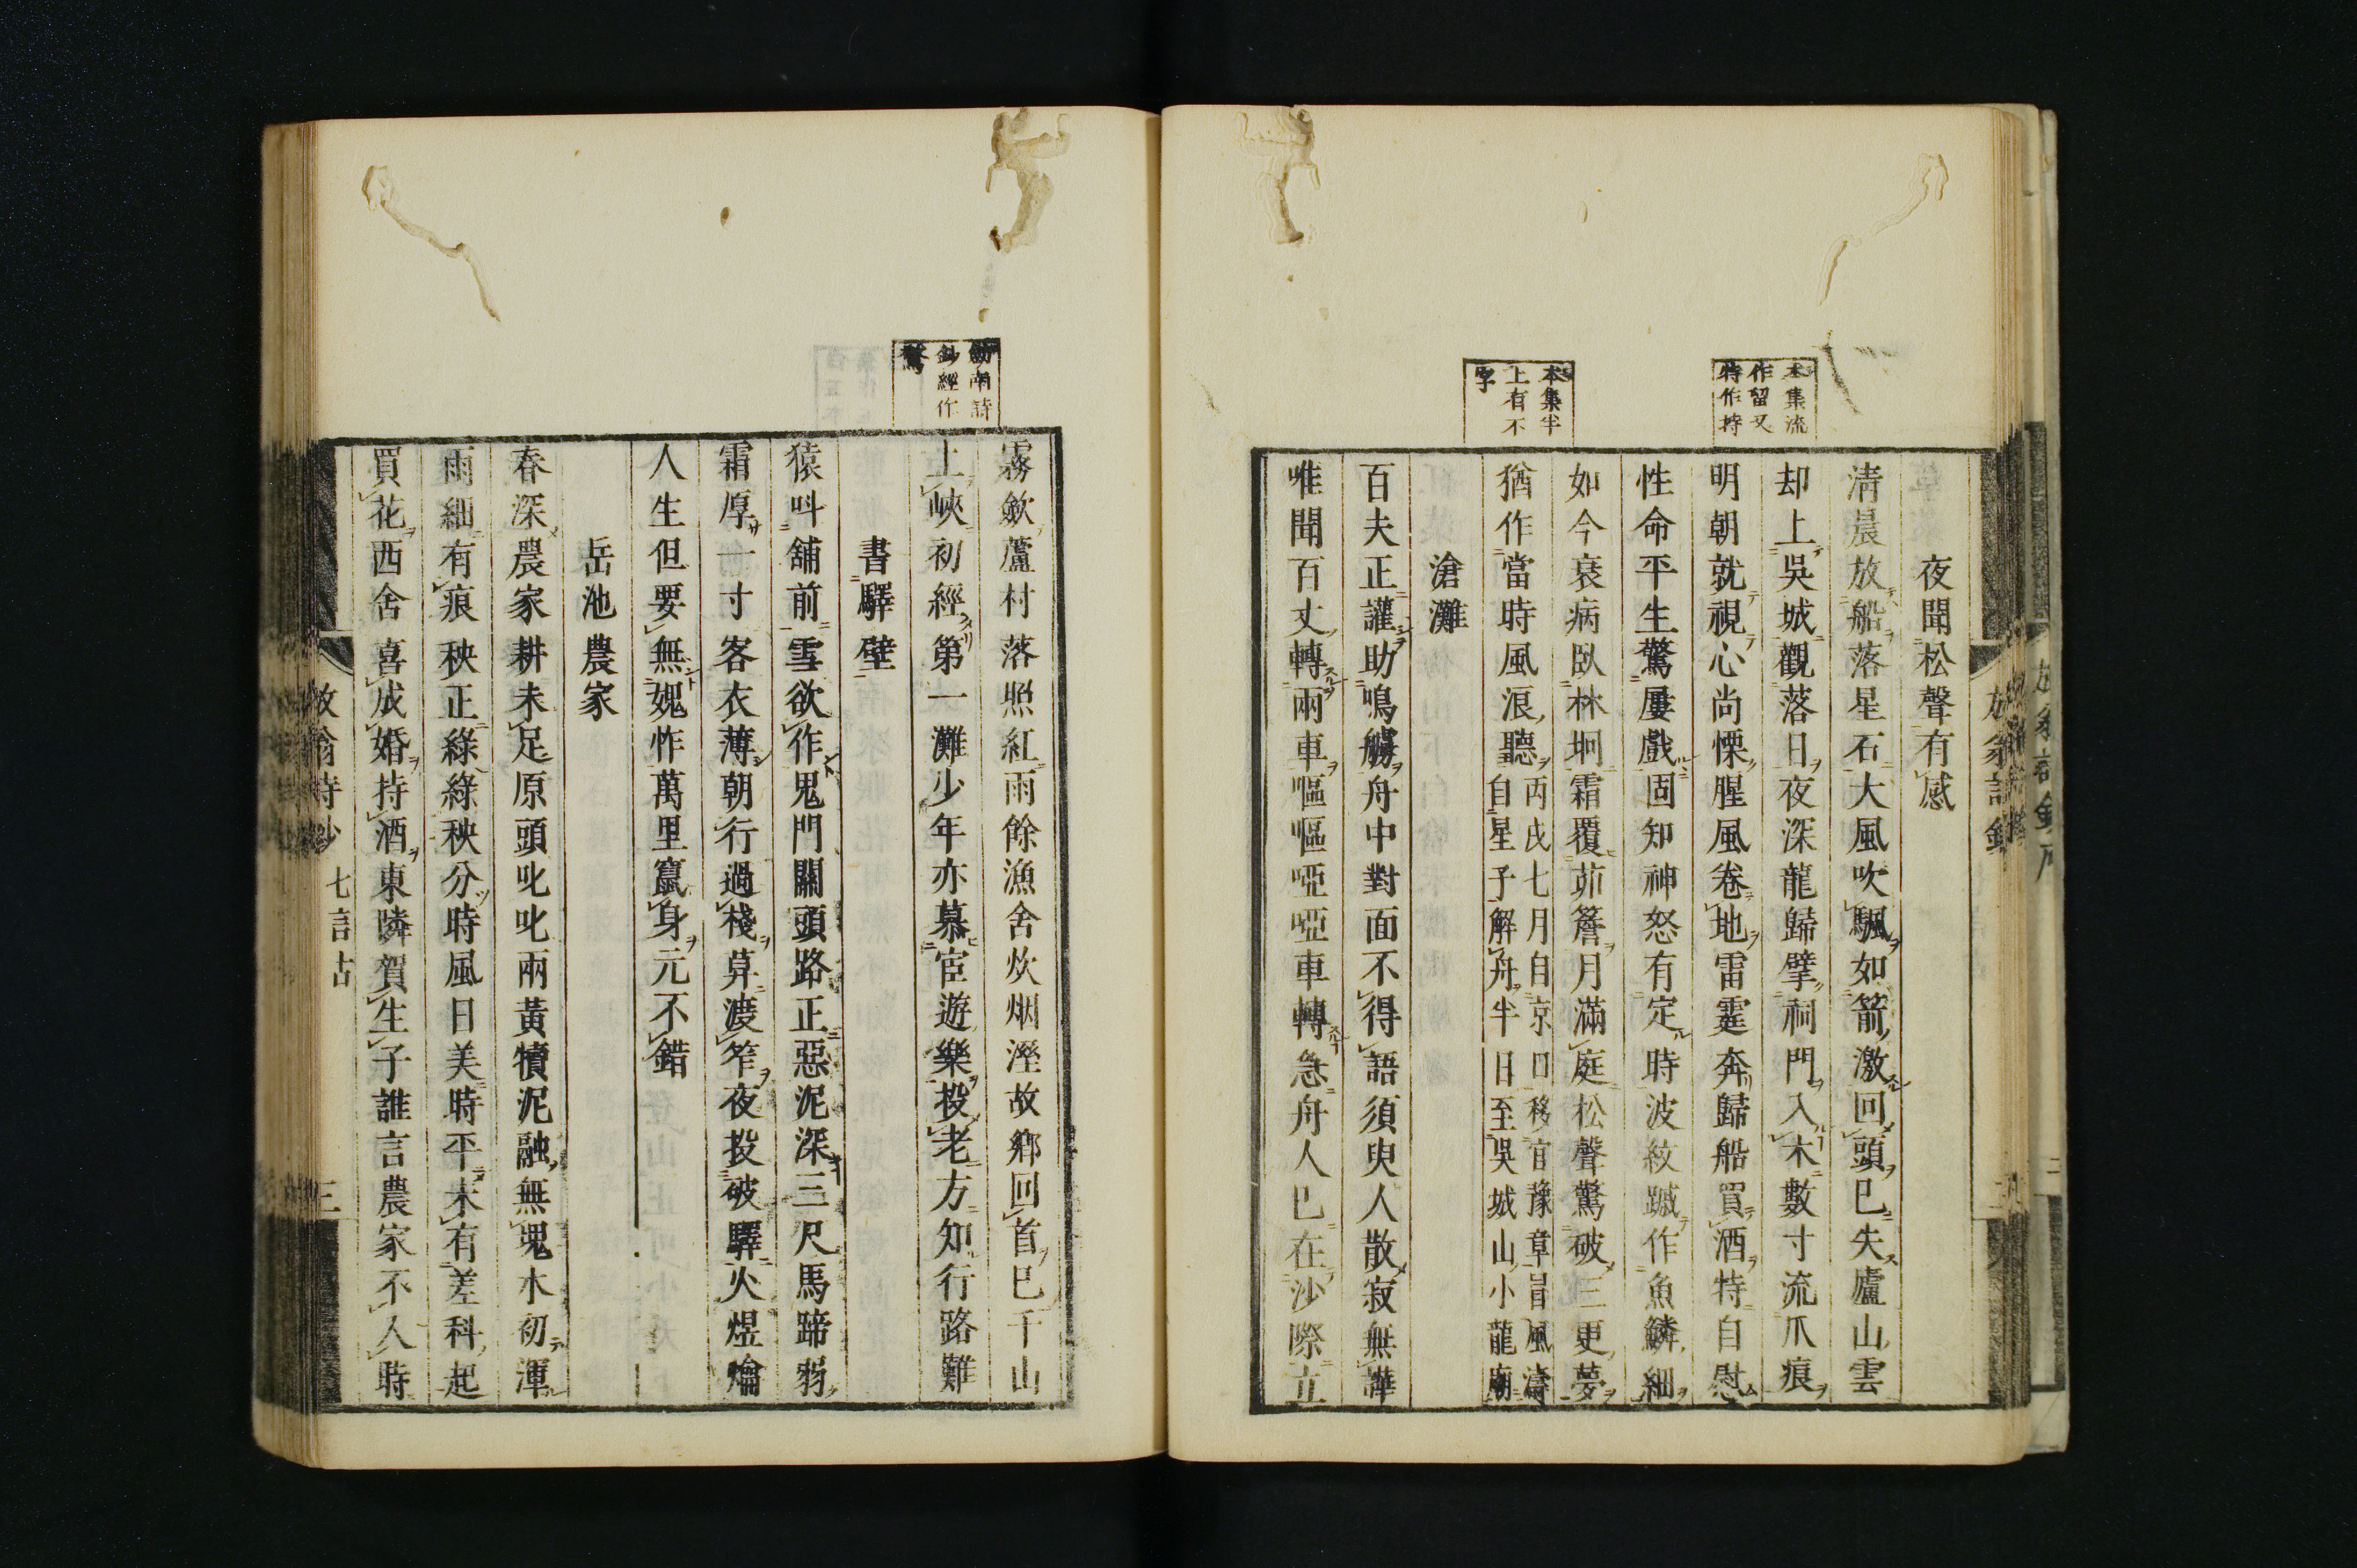 本集流
作留又
特作持
本集半
上有不
字
夜聞松聲有感
清晨放船落星石大風吹颿如箭激回頭已失廬山雲
却上吳城觀落日夜深龍歸擘祠門入木數寸流爪痕
明朝就視心尚慄腥風卷地雷霆奔歸船買酒特自慰
性命平生驚屢戲固知神怒有定時波紋蹙作魚鱗細
如今衰病臥林坰霜覆茆簷月滿庭松聲驚破三更夢
猶作當時風浪聽丙戌七月自京口移官豫章冒風濤
自星子解舟半日至吳城山小龍廟
滄灘
百夫正讙助鳴艣舟中對面不得語須臾人散寂無譁
唯聞百丈轉兩車嘔嘔啞啞車轉急舟人已在沙際立
劒南詩
鈔經作
驚
霧歛蘆村落照紅雨餘漁舍炊烟溼故鄕回首已千山
上峽初經第一灘少年亦慕宦遊樂投老方知行路難
書驛壁
猿呌舖前雪欲作鬼門關頭路正惡泥深三尺馬蹄弱
霜厚一寸客衣薄朝行過棧暮渡筰夜投破驛火煜爚
人生但要無媿怍萬里竄身元不錯
岳池農家
春深農家耕未足原頭叱叱兩黃犢泥融無塊水初渾
雨細有痕秧正綠綠秧分時風日美時平未有差科起
買花西舍喜成婚持酒東隣賀生子誰言農家不入時
放翁詩鈔 七言古
三